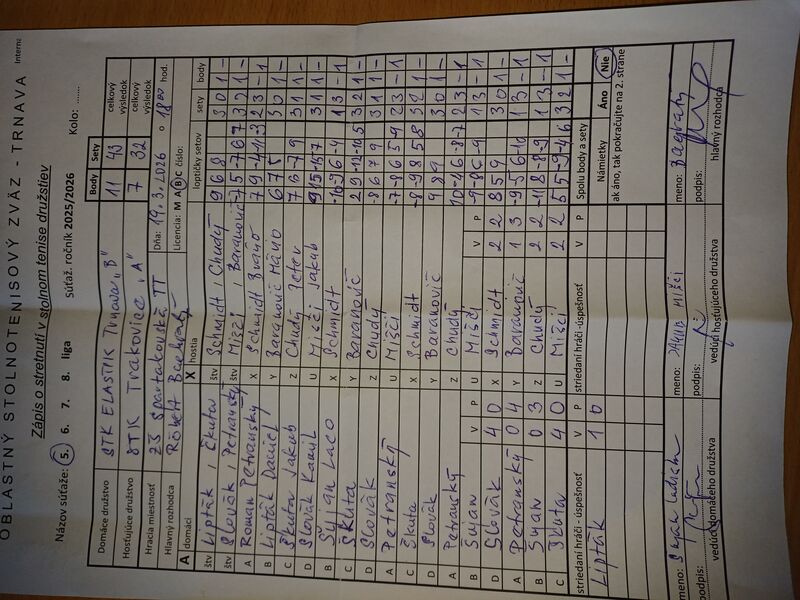 OBLASTNÝ STOLNOTENISOVÝ ZVÄZ - TRNAVA
Interná
Zápis o stretnutí v stolnom tenise družstiev
Názov súťaže: 5. 6. 7. 8. liga Súťaž. ročník 2025/2026 Kolo: ........
Body Sety
Domáce družstvo STK ELASTIK Trnava „B" 11 43 celkový výsledok
Hosťujúce družstvo STK Trakovice „A" 7 32 celkový výsledok
Hracia miestnosť ZŠ Spartakovská TT Dňa: 19.3.2026 o 18 00 hod.
Hlavný rozhodca Róbert Licencia: M A B C číslo:
A domáci X hostia loptičky setov sety body
štv Lipták, Škuta štv Schmidt, Chudý 9 6 8 3 0 1 -
štv Slovák, Petranský štv Mišči, Baranovič
A Roman Petranský X Schmidt Bruno
B Lipták Daniel Y Baranovič Mário 6 7 5 3 0 1 -
C Škuta Jakub Z Chudý Peter 7 6 -7 9 3 1 1 -
D Slovák Kamil U Mišči Jakub 3 1 1 -
B Šujan Laco X Schmidt 1 3 - 1
C Škuta Y Baranovič 2 9 -12 -10 5 3 2 1 -
D Slovák Z Chudý -8 6 7 9 3 1 1 -
A Petranský U Mišči -7 -8 6 5 -9 2 3 - 1
C Škuta X Schmidt
D Slovák Y Baranovič 9 8 9 3 0 1 -
A Petranský Z Chudý 10 -4 6 -8 -7 2 3 - 1
B Šujan U Mišči 1 3 - 1
V P V P
D Slovák 4 0 X Schmidt 2 2 8 5 9 3 0 1 -
A Petranský 0 4 Y Baranovič 1 3 1 3 - 1
B Šujan 0 3 Z Chudý 2 2 1 3 - 1
C Škuta 4 0 U Mišči 2 2 5 5 -9 -4 6 3 2 1 -
striedaní hráči -úspešnosť V P striedaní hráči -úspešnosť V P Spolu body a sety
Lipták 1 0 Námietky Áno Nie
ak áno, tak pokračujte na 2. strane
meno: meno: JAKUB MIŠČI meno:
podpis: podpis: podpis:
vedúci domáceho družstva vedúci hosťujúceho družstva hlavný rozhodca